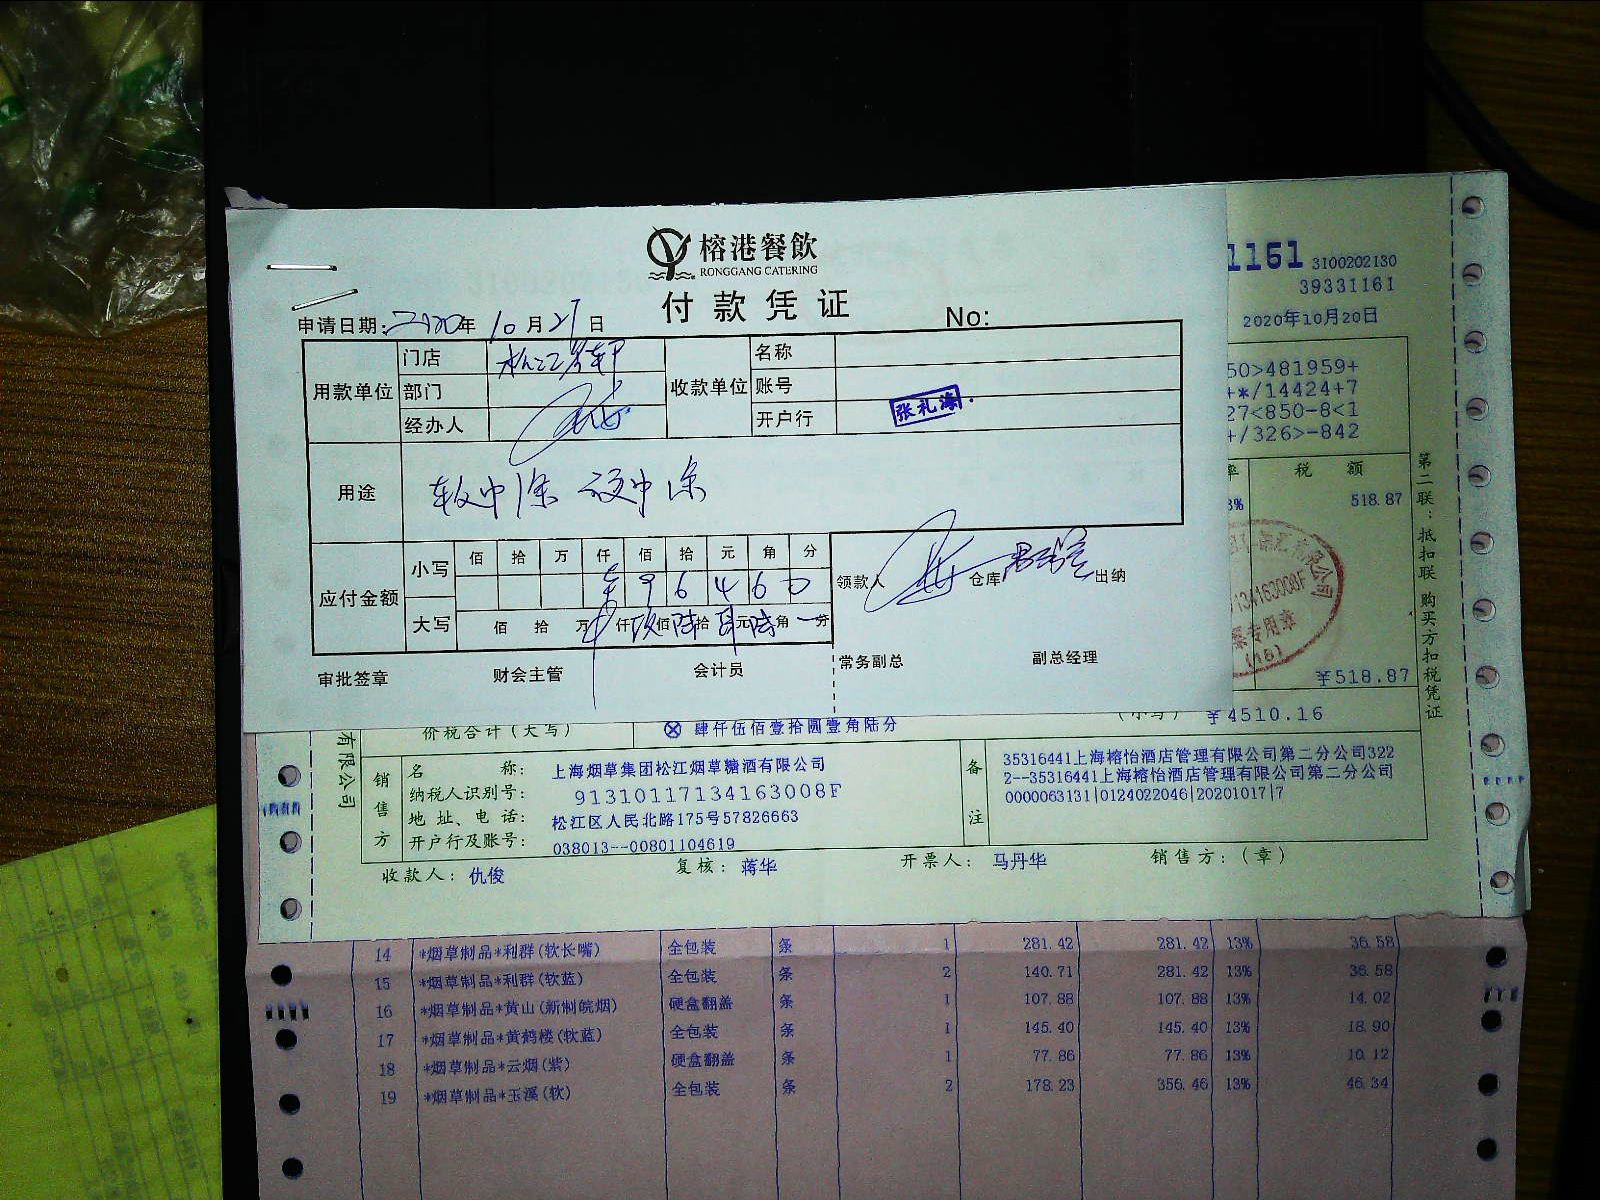 榕港餐飲
RONGGANG CATERING
付款凭证
申请日期: 2020年 10月21日
No:
用款单位 门店 收款单位 名称
部门 账号
经办人 开户行 张礼涛
用途 软中1条 硬中1条
应付金额 小写 佰 拾 万 仟 佰 拾 元 角 分
9 6 4 6 0
大写 佰 拾 万 仟 玖佰 陆拾 肆元 陆角 分
领款人 仓库 出纳
审批签章 财会主管 会计员 常务副总 副总经理
1161 3100202130
39331161
2020年10月20日
50>481959+
+*/14424+7
27<850-8<1
+/326>-842
率 税 额
3% 518.87
134163008F
专用章
(16)
¥518.87
第二联：抵扣联 购买方扣税凭证
价税合计（大写） ⊗ 肆仟伍佰壹拾圆壹角陆分 （小写） ¥4510.16
有限公司
销售方
名 称: 上海烟草集团松江烟草糖酒有限公司
纳税人识别号: 91310117134163008F
地 址、电 话: 松江区人民北路175号57826663
开户行及账号: 038013--00801104619
备注
35316441上海榕怡酒店管理有限公司第二分公司322
2--35316441上海榕怡酒店管理有限公司第二分公司
0000063131|0124022046|20201017|7
收款人: 仇俊 复核: 蒋华 开票人: 马丹华 销售方:(章)
14 *烟草制品*利群(软长嘴) 全包装 条 1 281.42 281.42 13% 36.58
15 *烟草制品*利群(软蓝) 全包装 条 2 140.71 281.42 13% 36.58
16 *烟草制品*黄山(新制皖烟) 硬盒翻盖 条 1 107.88 107.88 13% 14.02
17 *烟草制品*黄鹤楼(软蓝) 全包装 条 1 145.40 145.40 13% 18.90
18 *烟草制品*云烟(紫) 硬盒翻盖 条 1 77.86 77.86 13% 10.12
19 *烟草制品*玉溪(软) 全包装 条 2 178.23 356.46 13% 46.34